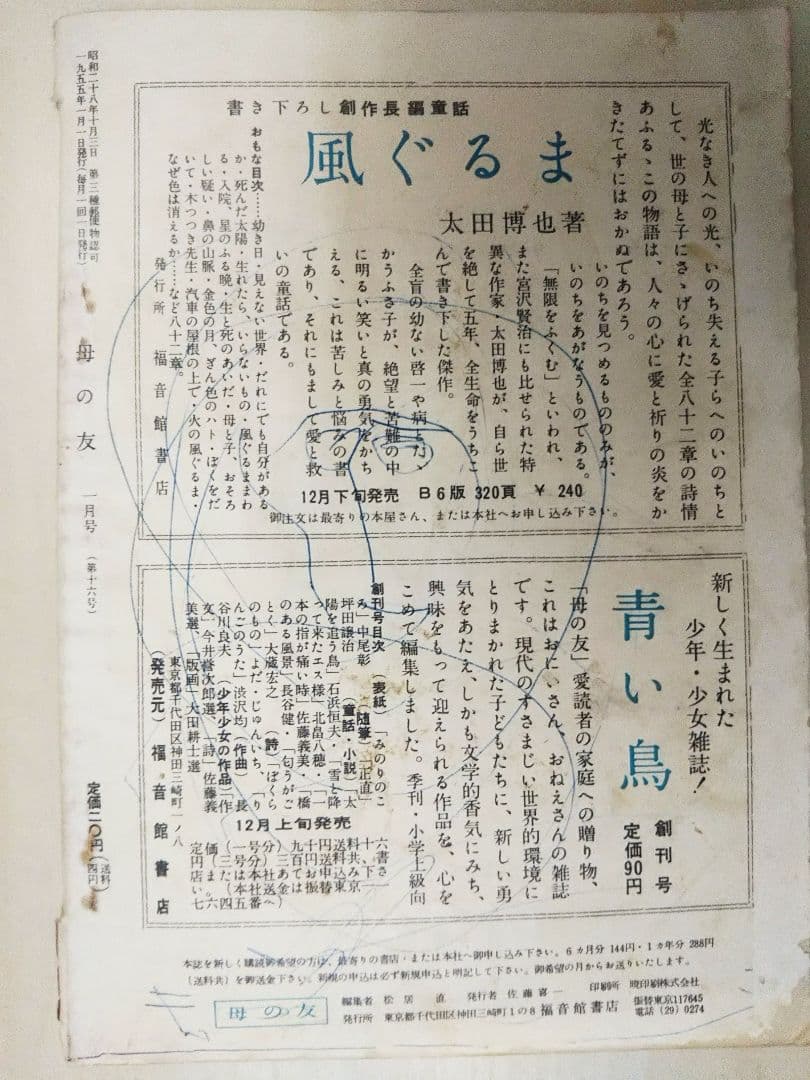 昭和二十八年十月三日 第三種郵便物認可
一九五五年一月一日発行(毎月一回一日発行)
母の友 一月号 (第十六号)
定価二〇円(送料四円)
光なき人への光、いのち失える子らへのいのちと
して、世の母と子にさゝげられた全八十二章の詩情
あふるゝこの物語は、人々の心に愛と祈りの炎をか
きたてずにはおかぬであろう。
書き下ろし創作長編童話
風ぐるま
太田博也著
いのちを見つめるもののみが、
いのちをあがなうものである。
「無限をふくむ」といわれ、
また宮沢賢治にも比せられた特
異な作家・太田博也が、自ら世
を絶して五年、全生命をうちこ
んで書き下した傑作。
全盲の幼ない啓一や病とたゝ
かうふさ子が、絶望と苦難の中
に明るい笑いと真の勇気をかち
える、これは苦しみと悩みの書
であり、それにもまして愛と救
いの童話である。
おもな目次……幼き日・見えない世界・だれにでも自分がある
か・死んだ太陽・生れたら、いらないもの・風ぐるままわ
る・入院、星のふる晩・生と死のあいだ・母と子、おそろ
しい疑い・鼻の山脈・金色の月、ぎん色のハト・ぼくをだ
いて・木つつき先生・汽車の屋根の上で・火の風ぐるま・
なぜ色は消えるか……など八十二章。
発行所 福音館書店
12月下旬発売 B6版 320頁 ¥240
御注文は最寄りの本屋さん、または本社へお申し込み下さい。
新しく生まれた
少年・少女雑誌!
青い鳥
創刊号
定価90円
「母の友」愛読者の家庭への贈り物、
これはおにいさん、おねえさんの雑誌
です。現代のすさまじい世界的環境に
とりまかれた子どもたちに、新しい勇
気をあたえ、しかも文学的香気にみち、
興味をもって迎えられる作品を、心を
こめて編集しました。季刊・小学上級向
創刊号目次 (表紙)「みのりのこ
み」中尾彰 (随筆)「三正直」
坪田譲治 (童話・小説)「太
陽を追う鳥」石浜恒夫・「雪と降
って来たエス様」北畠八穂・「一
本の指が痛い時」佐藤義美・「橋
のある風景」長谷健・「匂うがご
とく」大蔵宏之 (詩)「ぼくら
のもの」よだ・じゅんいち、「り
んごのうた」渋沢均(作曲)長
谷川良夫 (少年少女の作品)「作
文」今井誉次郎選、「詩」佐藤義
美選、「版画」大田耕士選
東京都千代田区神田三崎町一ノ八
(発売元) 福音館書店
12月上旬発売
本誌を新しく購読御希望の方は、最寄りの書店・または本社へ御申し込み下さい。6カ月分 144円・1カ年分 288円
(送料共)を御送金下さい。新規の申込は必ず新規申込と明記して下さい。御希望の月からお送りいたします。
母の友
編集者 松居 直 発行者 佐藤喜一 印刷所 暁印刷株式会社
発行所 東京都千代田区神田三崎町1の8 福音館書店 振替東京117645
電話(29)0274